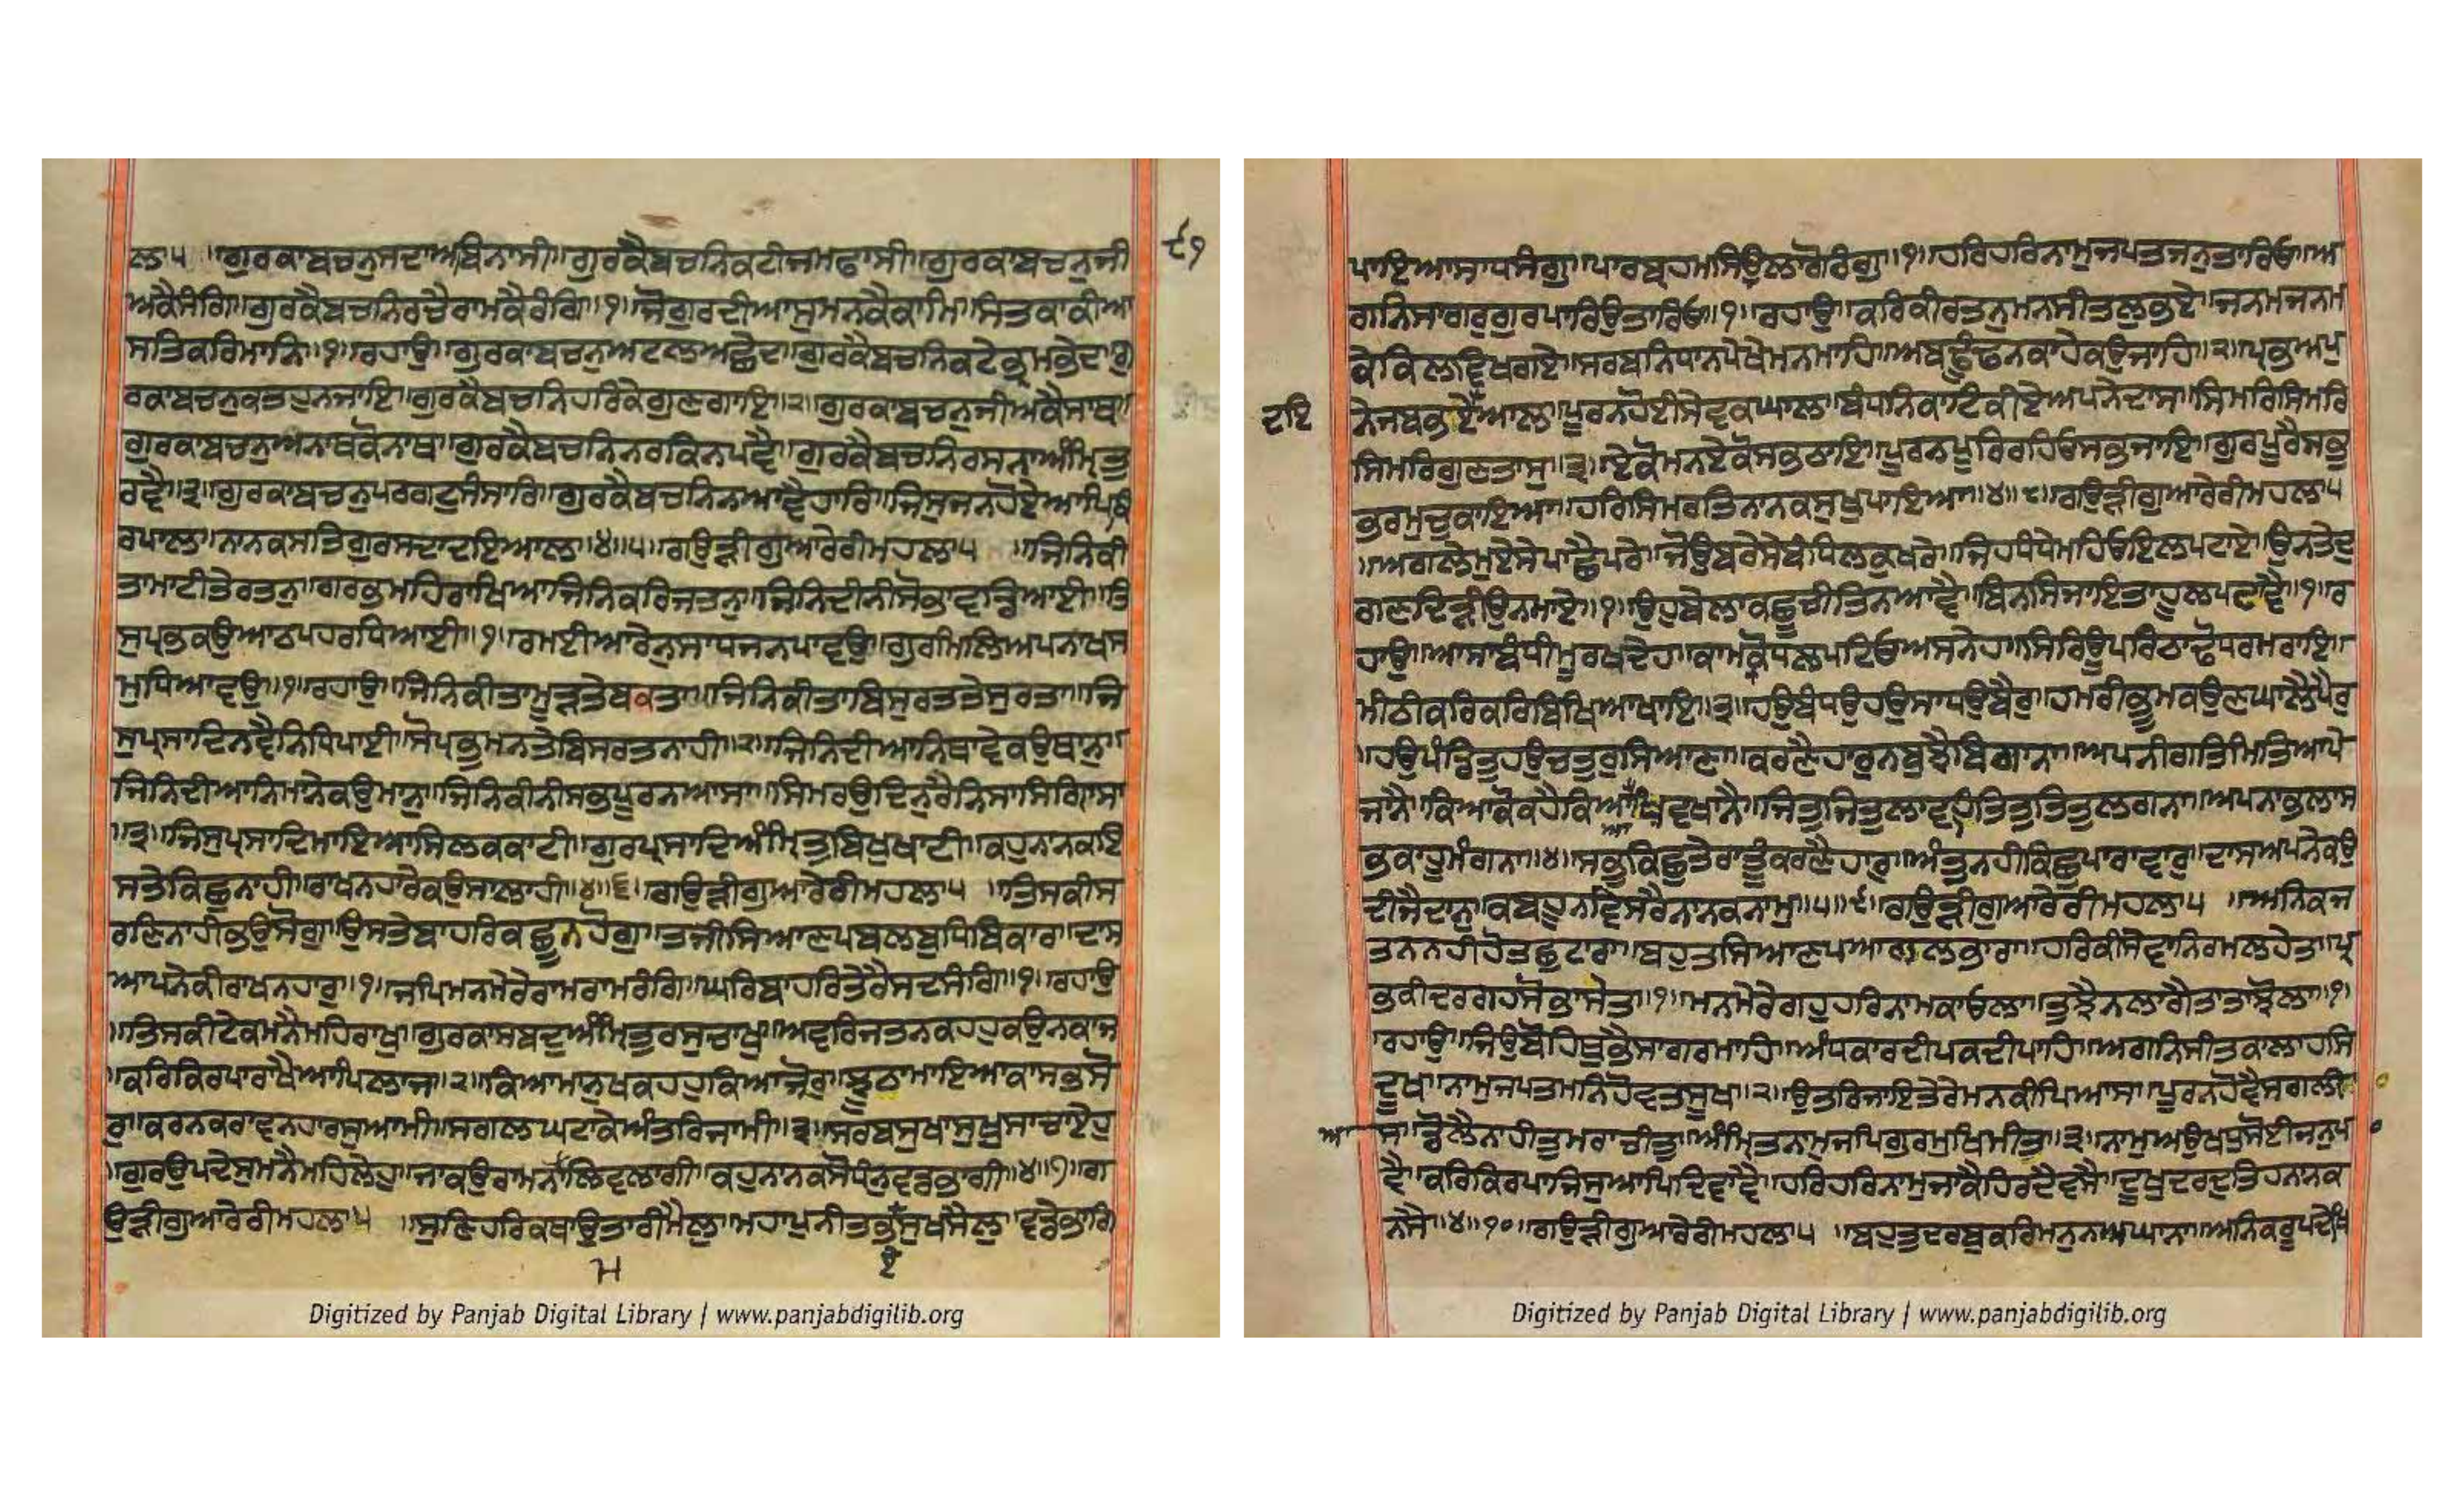 ਲਾ ੫ ॥ ਗੁਰ ਕਾ ਬਚਨੁ ਸਦਾ ਅਬਿਨਾਸੀ ॥ ਗੁਰ ਕੈ ਬਚਨਿ ਕਟੀ ਜਮ ਫਾਸੀ ॥ ਗੁਰ ਕਾ ਬਚਨੁ ਜੀ
੯੧
ਅ ਕੈ ਸੰਗਿ ॥ ਗੁਰ ਕੈ ਬਚਨਿ ਰਚੈ ਰਾਮ ਕੈ ਰੰਗਿ ॥੧॥ ਜੋ ਗੁਰਿ ਦੀਆ ਸੁ ਮਨ ਕੈ ਕਾਮਿ ॥ ਸੰਤ ਕਾ ਕੀਆ
ਸਤਿ ਕਰਿ ਮਾਨਿ ॥੧॥ ਰਹਾਉ ॥ ਗੁਰ ਕਾ ਬਚਨੁ ਅਟਲ ਅਛੇਦ ॥ ਗੁਰ ਕੈ ਬਚਨਿ ਕਟੇ ਭ੍ਰਮ ਭੇਦ ॥ ਗੁ
ਰ ਕਾ ਬਚਨੁ ਕਤਹੁ ਨ ਜਾਇ ॥ ਗੁਰ ਕੈ ਬਚਨਿ ਹਰਿ ਕੇ ਗੁਣ ਗਾਇ ॥੨॥ ਗੁਰ ਕਾ ਬਚਨੁ ਜੀਅ ਕੈ ਸਾਥ ॥
ਗੁਰ ਕਾ ਬਚਨੁ ਅਨਾਥ ਕੋ ਨਾਥ ॥ ਗੁਰ ਕੈ ਬਚਨਿ ਨਰਕਿ ਨ ਪਵੈ ॥ ਗੁਰ ਕੈ ਬਚਨਿ ਰਸਨਾ ਅੰਮ੍ਰਿਤੁ
ਰਵੈ ॥੩॥ ਗੁਰ ਕਾ ਬਚਨੁ ਪਰਗਟੁ ਸੰਸਾਰਿ ॥ ਗੁਰ ਕੈ ਬਚਨਿ ਨ ਆਵੈ ਹਾਰਿ ॥ ਜਿਸੁ ਜਨ ਹੋਏ ਆਪਿ ਕ੍ਰਿ
ਰਪਾਲ ॥ ਨਾਨਕ ਸਤਿਗੁਰ ਸਦਾ ਦਇਆਲ ॥੪॥੫॥ ਗਉੜੀ ਗੁਆਰੇਰੀ ਮਹਲਾ ੫ ॥ ਜਿਨਿ ਕੀ
ਤਾ ਮਾਟੀ ਤੇ ਰਤਨੁ ॥ ਗਰਭ ਮਹਿ ਰਾਖਿਆ ਜਿਨਿ ਕਰਿ ਜਤਨੁ ॥ ਜਿਨਿ ਦੀਨੀ ਸੋਭਾ ਵਡਿਆਈ ॥ ਤਿ
ਸੁ ਪ੍ਰਭ ਕਉ ਆਠ ਪਹਰ ਧਿਆਈ ॥੧॥ ਰਮਈਆ ਰੇਨੁ ਸਾਧ ਜਨ ਪਾਵਉ ॥ ਗੁਰ ਮਿਲਿ ਅਪਨਾ ਖਸ
ਮੁ ਧਿਆਵਉ ॥੧॥ ਰਹਾਉ ॥ ਜਿਨਿ ਕੀਤਾ ਮੂੜ ਤੇ ਬਕਤਾ ॥ ਜਿਨਿ ਕੀਤਾ ਬਿਸੁਰਤ ਤੇ ਸੁਰਤਾ ॥ ਜਿ
ਸੁ ਪ੍ਰਸਾਦਿ ਨਵੈ ਨਿਧਿ ਪਾਈ ॥ ਸੋ ਪ੍ਰਭੁ ਮਨ ਤੇ ਬਿਸਰਤ ਨਾਹੀ ॥੨॥ ਜਿਨਿ ਦੀਆ ਨਿਥਾਵੇ ਕਉ ਥਾਨੁ ॥
ਜਿਨਿ ਦੀਆ ਨਿਮਾਨੇ ਕਉ ਮਾਨੁ ॥ ਜਿਨਿ ਕੀਨੀ ਸਭ ਪੂਰਨ ਆਸਾ ॥ ਸਿਮਰਉ ਦਿਨੁ ਰੈਨਿ ਸਾਸਿ ਗਿਰਾਸਾ
॥੩॥ ਜਿਸੁ ਪ੍ਰਸਾਦਿ ਮਾਇਆ ਸਿਲਕ ਕਾਟੀ ॥ ਗੁਰ ਪ੍ਰਸਾਦਿ ਅੰਮ੍ਰਿਤੁ ਬਿਖੁ ਖਾਟੀ ॥ ਕਹੁ ਨਾਨਕ ਇ
ਸ ਤੇ ਕਿਛੁ ਨਾਹੀ ॥ ਰਾਖਨਹਾਰੇ ਕਉ ਸਾਲਾਹੀ ॥੪॥੬॥ ਗਉੜੀ ਗੁਆਰੇਰੀ ਮਹਲਾ ੫ ॥ ਤਿਸ ਕੀ ਸ
ਰਣਿ ਨਾਹੀ ਭਉ ਸੋਗੁ ॥ ਉਸ ਤੇ ਬਾਹਰਿ ਕਛੂ ਨ ਹੋਗੁ ॥ ਤਜੀ ਸਿਆਣਪ ਬਲ ਬੁਧਿ ਬਿਕਾਰ ॥ ਦਾਸ
ਆਪਨੇ ਕੀ ਰਾਖਨਹਾਰੁ ॥੧॥ ਜਪਿ ਮਨ ਮੇਰੇ ਰਾਮ ਰਾਮ ਰੰਗਿ ॥ ਘਰਿ ਬਾਹਰਿ ਤੇਰੈ ਸਦ ਸੰਗਿ ॥੧॥ ਰਹਾਉ
॥ ਤਿਸ ਕੀ ਟੇਕ ਮਨੈ ਮਹਿ ਰਾਖੁ ॥ ਗੁਰ ਕਾ ਸਬਦੁ ਅੰਮ੍ਰਿਤੁ ਰਸੁ ਚਾਖੁ ॥ ਅਵਰਿ ਜਤਨ ਕਹਹੁ ਕਉਨ ਕਾਜ
॥ ਕਰਿ ਕਿਰਪਾ ਰਾਖੈ ਆਪਿ ਲਾਜ ॥੨॥ ਕਿਆ ਮਾਨੁਖ ਕਹਹੁ ਕਿਆ ਜੋਰੁ ॥ ਝੂਠਾ ਮਾਇਆ ਕਾ ਸਭੁ ਸੋ
ਰੁ ॥ ਕਰਨ ਕਰਾਵਨਹਾਰ ਸੁਆਮੀ ॥ ਸਗਲ ਘਟਾ ਕੇ ਅੰਤਰਜਾਮੀ ॥੩॥ ਸਰਬ ਸੁਖਾ ਸੁਖੁ ਸਾਚਾ ਏਹੁ
॥ ਗੁਰ ਉਪਦੇਸੁ ਮਨੈ ਮਹਿ ਲੇਹੁ ॥ ਜਾ ਕਉ ਰਾਮ ਨਾਮ ਲਿਵ ਲਾਗੀ ॥ ਕਹੁ ਨਾਨਕ ਸੋ ਧੰਨੁ ਵਡਭਾਗੀ ॥੪॥੭॥ ਗ
ਉੜੀ ਗੁਆਰੇਰੀ ਮਹਲਾ ੫ ॥ ਸੁਣਿ ਹਰਿ ਕਥਾ ਉਤਾਰੀ ਮੈਲੁ ॥ ਮਹਾ ਪੁਨੀਤ ਭਏ ਸੁਖ ਸੈਲੁ ॥ ਵਡੈ ਭਾਗਿ
ਮ ਏ
ਪਾਇਆ ਸਾਧ ਸੰਗੁ ॥ ਪਾਰਬ੍ਰਹਮ ਸਿਉ ਲਾਗੋ ਰੰਗੁ ॥੧॥ ਹਰਿ ਹਰਿ ਨਾਮੁ ਜਪਤ ਜਨੁ ਤਾਰਿਓ ॥ ਅ
ਗਨਿ ਸਾਗਰੁ ਗੁਰ ਪਾਰਿ ਉਤਾਰਿਓ ॥੧॥ ਰਹਾਉ ॥ ਕਰਿ ਕੀਰਤਨੁ ਮਨ ਸੀਤਲੁ ਭਏ ॥ ਜਨਮ ਜਨਮ
ਕੇ ਕਿਲਵਿਖ ਗਏ ॥ ਸਰਬ ਨਿਧਾਨ ਪੇਖੇ ਮਨ ਮਾਹਿ ॥ ਅਬ ਢੂੰਢਨ ਕਾਹੇ ਕਉ ਜਾਹਿ ॥੨॥ ਪ੍ਰਭ ਅਪੁ
ਦਇ
ਨੇ ਜਬ ਭਏ ਆਲ ॥ ਪੂਰਨ ਹੋਈ ਸੇਵਕ ਘਾਲ ॥ ਬੰਧਨ ਕਾਟਿ ਕੀਏ ਅਪਨੇ ਦਾਸ ॥ ਸਿਮਰਿ ਸਿਮਰਿ
ਸਿਮਰਿ ਗੁਣਤਾਸ ॥੩॥ ਏਕੋ ਮਨਿ ਏਕੋ ਸਭ ਠਾਇ ॥ ਪੂਰਨ ਪੂਰਿ ਰਹਿਓ ਸਭ ਜਾਇ ॥ ਗੁਰ ਪੂਰੈ ਸਭੁ
ਭਰਮੁ ਚੁਕਾਇਆ ॥ ਹਰਿ ਸਿਮਰਤ ਨਾਨਕ ਸੁਖੁ ਪਾਇਆ ॥੪॥੮॥ ਗਉੜੀ ਗੁਆਰੇਰੀ ਮਹਲਾ ੫
॥ ਅਗਲੇ ਮੁਏ ਸੇ ਪਾਛੈ ਪਰੇ ॥ ਜੋ ਉਬਰੇ ਸੇ ਬੰਧਿ ਲਕੁ ਖਰੇ ॥ ਜਿਹ ਧੰਧੇ ਮਹਿ ਓਇ ਲਪਟਾਏ ॥ ਉਨ ਤੇ ਦੁ
ਗੁਣ ਦਿੜੀ ਉਨ ਮਾਏ ॥੧॥ ਉਹ ਬੇਲਾ ਕਛੁ ਚੀਤਿ ਨ ਆਵੈ ॥ ਬਿਨਸਿ ਜਾਇ ਤਾਹੂ ਲਪਟਾਵੈ ॥੧॥ ਰ
ਹਾਉ ॥ ਆਸਾ ਬੰਧੀ ਮੂਰਖ ਦੇਹ ॥ ਕਾਮ ਕ੍ਰੋਧ ਲਪਟਿਓ ਅਸਨੇਹ ॥ ਸਿਰ ਊਪਰਿ ਠਾਢੋ ਧਰਮਰਾਇ ॥
ਮੀਠੀ ਕਰਿ ਕਰਿ ਬਿਖਿਆ ਖਾਇ ॥੨॥ ਹਉ ਬੰਧਉ ਹਉ ਸਾਧਉ ਬੈਰੁ ॥ ਹਮਰੀ ਭੂਮਿ ਕਉਣੁ ਘਾਲੈ ਪੈਰੁ
॥ ਹਉ ਪੰਡਿਤੁ ਹਉ ਚਤੁਰੁ ਸਿਆਣਾ ॥ ਕਰਣੈਹਾਰੁ ਨ ਬੁਝੈ ਬਿਗਾਨਾ ॥ ਅਪਨੀ ਗਤਿ ਮਿਤਿ ਆਪੇ
ਜਾਨੈ ॥ ਕਿਆ ਕੋ ਕਹੈ ਕਿਆ ਆਖਿ ਵਖਾਨੈ ॥ ਜਿਤੁ ਜਿਤੁ ਲਾਵਹਿ ਤਿਤੁ ਤਿਤੁ ਲਗਨਾ ॥ ਅਪਨਾ ਭਲਾ ਸ
ਭ ਕਾਹੂ ਮੰਗਨਾ ॥੪॥ ਸਭ ਕਿਛੁ ਤੇਰਾ ਤੂੰ ਕਰਣੈਹਾਰੁ ॥ ਅੰਤੁ ਨਹੀ ਕਿਛੁ ਪਾਰਾਵਾਰੁ ॥ ਦਾਸ ਅਪਨੇ ਕਉ
ਦੀਜੈ ਦਾਨੁ ॥ ਕਬਹੂ ਨ ਵਿਸਰੈ ਨਾਨਕ ਨਾਮੁ ॥੫॥੯॥ ਗਉੜੀ ਗੁਆਰੇਰੀ ਮਹਲਾ ੫ ॥ ਅਨਿਕ ਜ
ਤਨ ਨਹੀ ਹੋਤ ਛੁਟਾਰਾ ॥ ਬਹੁਤੁ ਸਿਆਣਪ ਆਗਲ ਭਾਰਾ ॥ ਹਰਿ ਕੀ ਸੇਵਾ ਨਿਰਮਲ ਹੇਤ ॥ ਪ੍ਰ
ਭ ਕੀ ਦਰਗਹ ਸੋਭਾ ਸੇਤ ॥੧॥ ਮਨ ਮੇਰੇ ਗਹੁ ਹਰਿ ਨਾਮ ਕਾ ਓਲਾ ॥ ਤੁਝੈ ਨ ਲਾਗੈ ਤਾਤਾ ਝੋਲਾ ॥੧॥
ਰਹਾਉ ॥ ਜਿਉ ਬੋਹਿਥੁ ਭੈ ਸਾਗਰ ਮਾਹਿ ॥ ਅੰਧਕਾਰ ਦੀਪਕ ਦੀਪਾਹਿ ॥ ਅਗਨਿ ਸੀਤ ਕਾ ਲਾਹਸਿ
ਦੂਖ ॥ ਨਾਮੁ ਜਪਤ ਮਨਿ ਹੋਵਤ ਸੂਖ ॥੨॥ ਉਤਰਿ ਜਾਇ ਤੇਰੇ ਮਨ ਕੀ ਪਿਆਸ ॥ ਪੂਰਨ ਹੋਵੈ ਸਗਲੀ
ਆ
ਸ ॥ ਡੋਲੈ ਨਾਹੀ ਤੁਮਰਾ ਚੀਤੁ ॥ ਅੰਮ੍ਰਿਤ ਨਾਮੁ ਜਪਿ ਗੁਰਮੁਖਿ ਮੀਤ ॥੩॥ ਨਾਮੁ ਅਉਖਧੁ ਸੋਈ ਜਨੁ ਪਾ
ਵੈ ॥ ਕਰਿ ਕਿਰਪਾ ਜਿਸੁ ਆਪਿ ਦਿਵਾਵੈ ॥ ਹਰਿ ਹਰਿ ਨਾਮੁ ਜਾ ਕੈ ਹਿਰਦੈ ਵਸੈ ॥ ਦੂਖੁ ਦਰਦੁ ਤਿਹ ਨਾਨਕ
ਨਸੈ ॥੪॥੧੦॥ ਗਉੜੀ ਗੁਆਰੇਰੀ ਮਹਲਾ ੫ ॥ ਬਹੁਤੁ ਦਰਬੁ ਕਰਿ ਮਨੁ ਨ ਅਘਾਨਾ ॥ ਅਨਿਕ ਰੂਪ ਦੇਖਿ
Digitized by Panjab Digital Library | www.panjabdigilib.org
Digitized by Panjab Digital Library | www.panjabdigilib.org